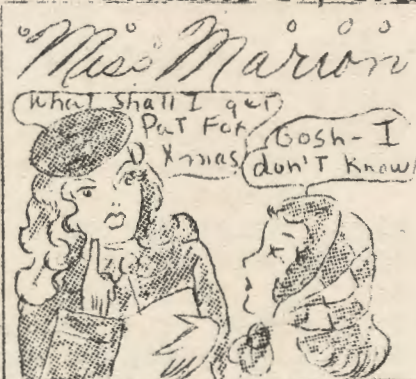 Miss Marion
What shall I get
Pat For
Xmas
Gosh- I
don't know